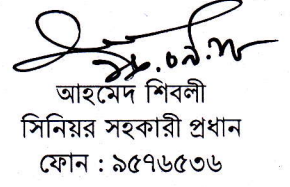 আহমেদ শিবলী
সিনিয়র সহকারী প্রধান
ফোন : ৯৫৭৬৫৩৬